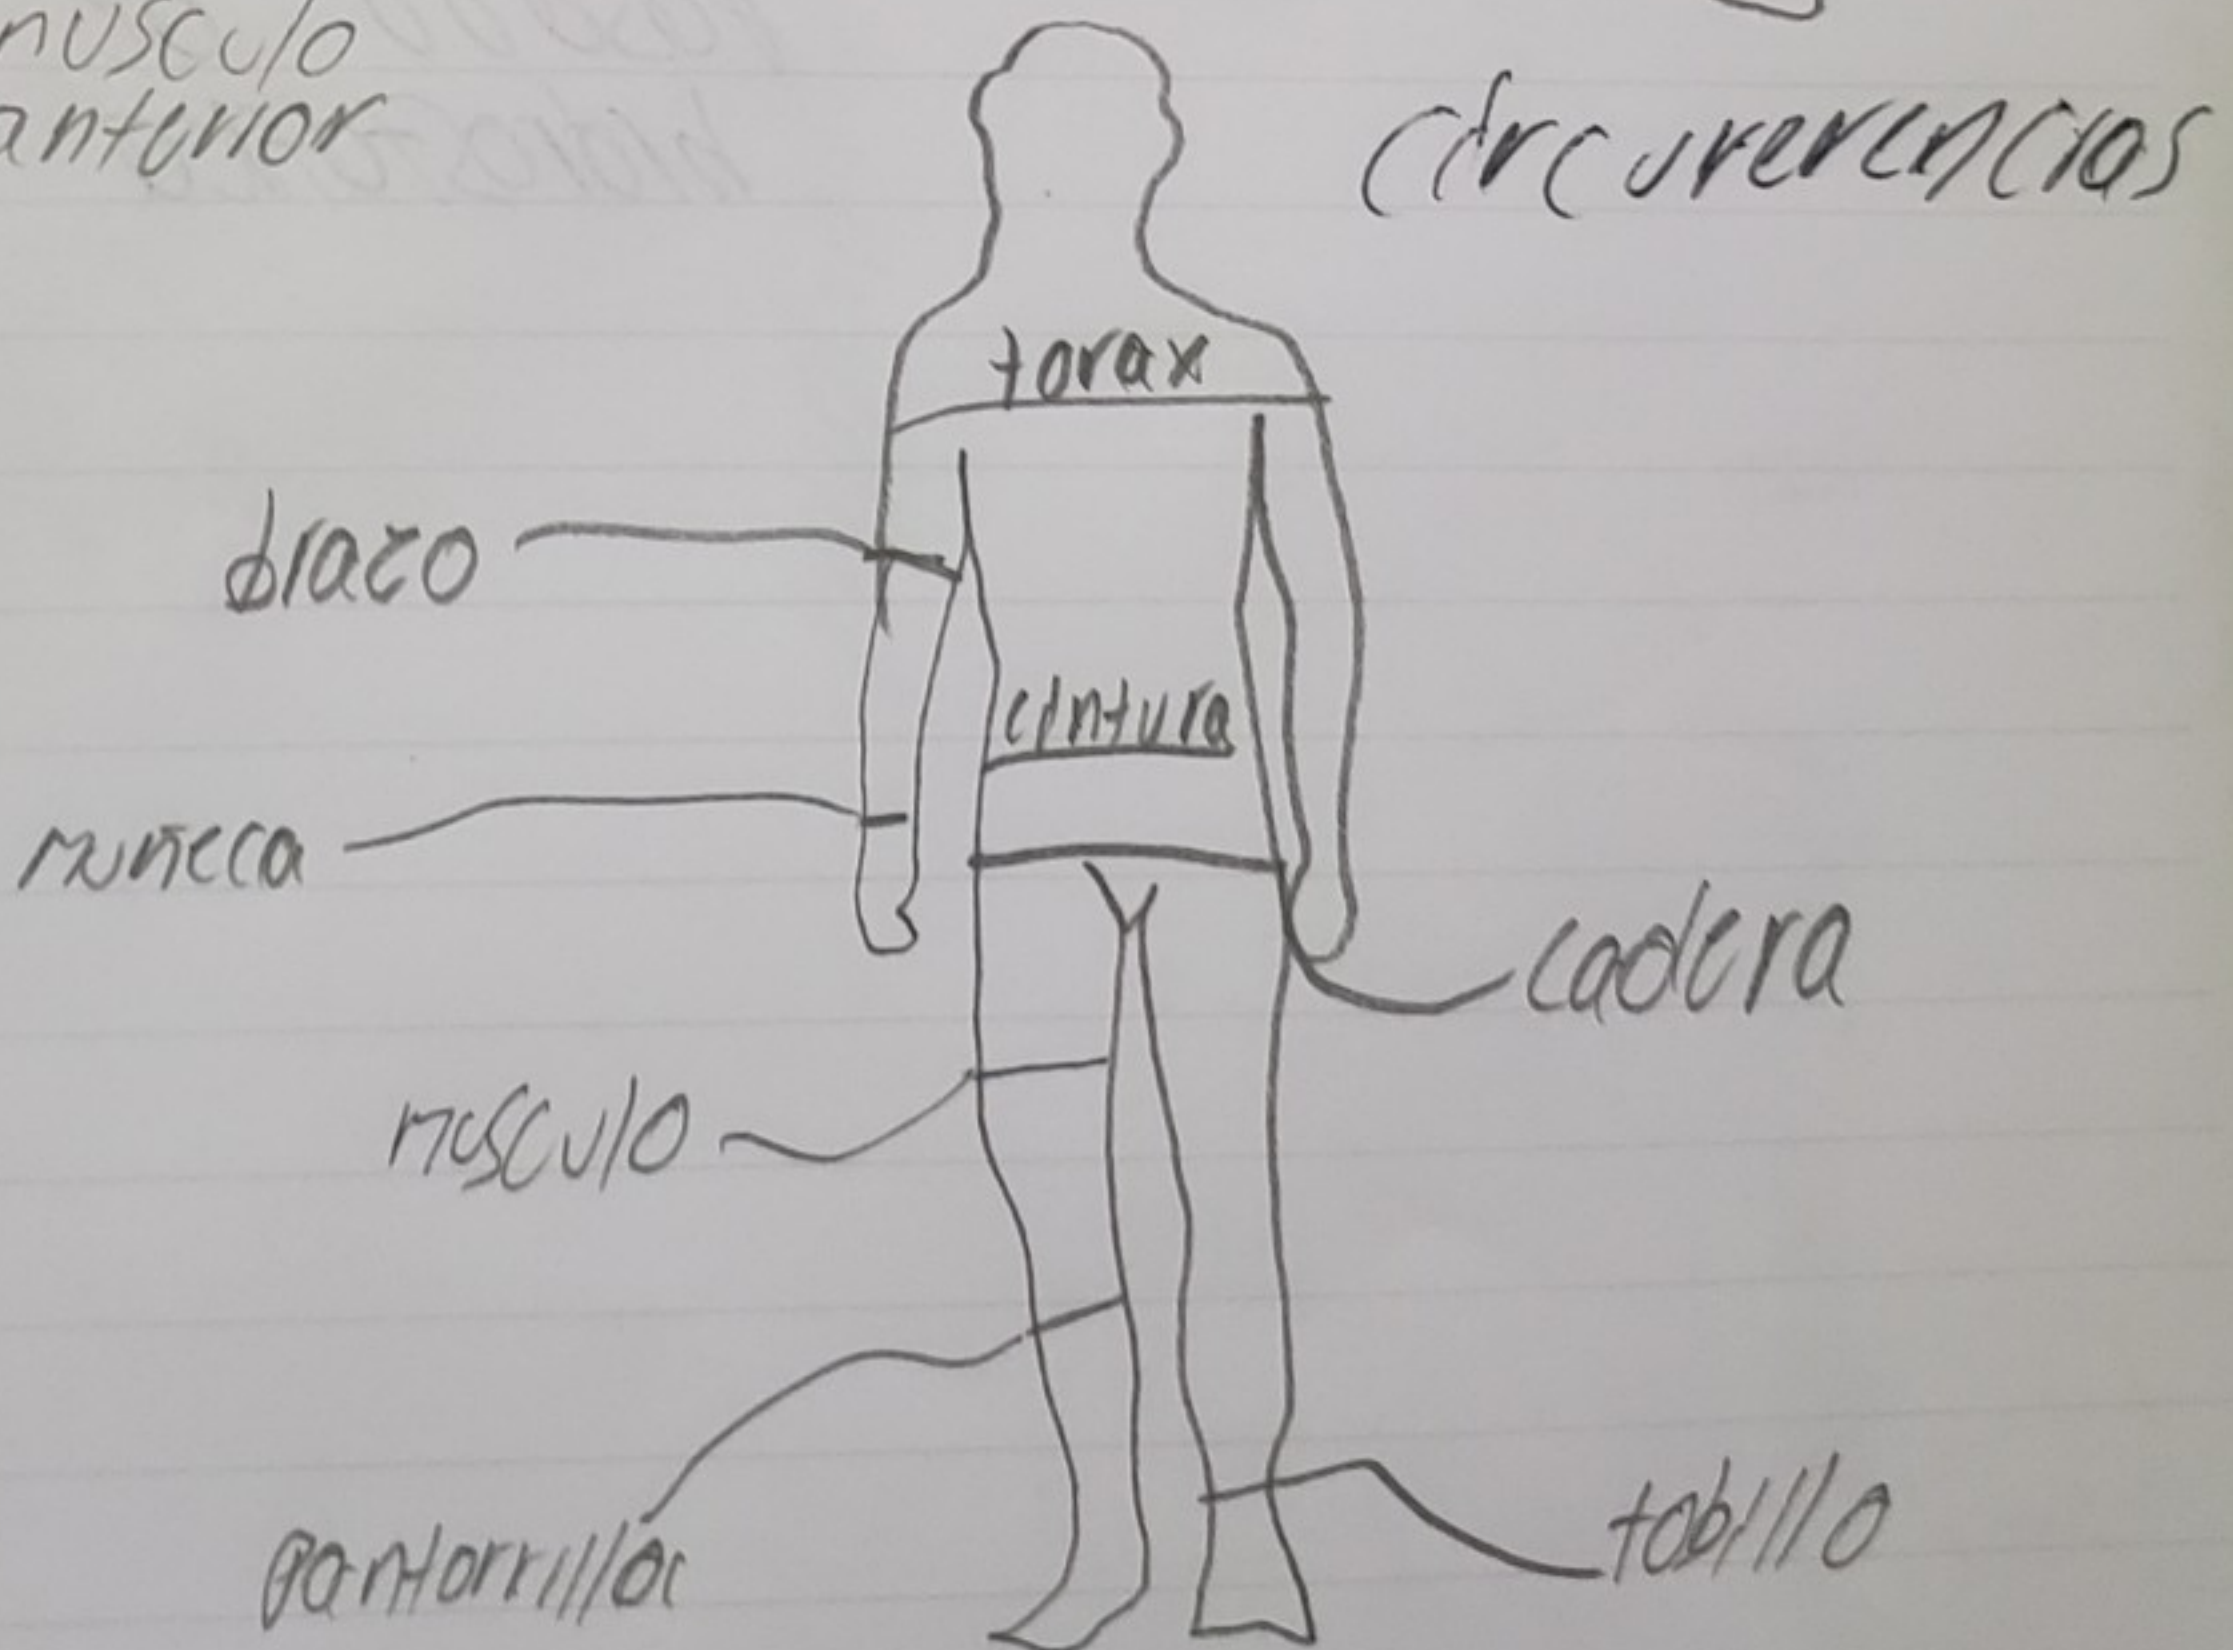 musculo
anterior
circurerencias
torax
brazo
cintura
muñeca
cadera
musculo
pantorrilla
tobillo